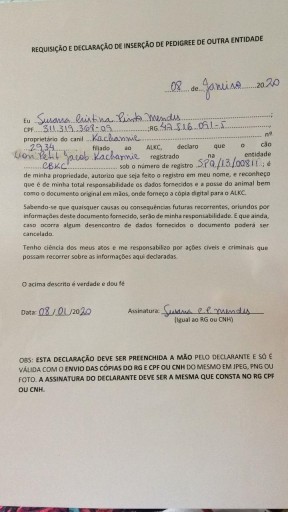 REQUISIÇÃO E DECLARAÇÃO DE INSERÇÃO DE PEDIGREE DE OUTRA ENTIDADE
08 de Janeiro 2020
Eu Susana Cristina Pinta Mendes
CPF 311.319.368-09 RG 49.516.091-5
proprietário do canil Kacharmie nº
2934 filiado ao ALKC, declaro que o
Lion Peti Jacob Kacharmie registrado na entidade
CBKC sob o número de registro SPQ/13/00811; é
de minha propriedade, autorizo que seja feito o registro em meu nome, e reconheço
que é de minha total responsabilidade os dados fornecidos e a posse do animal bem
como o documento original em mãos, onde forneço a cópia digital para o ALKC.
Sabendo-se que quaisquer causas ou consequências futuras recorrentes, oriundos por
informações deste documento fornecido, serão de minha responsabilidade. E que ainda,
caso ocorra algum desencontro de dados fornecidos o documento poderá ser
cancelado.
Tenho ciência dos meus atos e me responsabilizo por ações cíveis e criminais que
possam recorrer sobre as informações aqui declaradas.
O acima descrito é verdade e dou fé
Data: 08/01/2020 Assinatura: Susana C P Mendes
(Igual ao RG ou CNH)
OBS: ESTA DECLARAÇÃO DEVE SER PREENCHIDA A MÃO PELO DECLARANTE E SÓ É
VÁLIDA COM O ENVIO DAS CÓPIAS DO RG E CPF OU CNH DO MESMO EM JPEG, PNG OU
FOTO. A ASSINATURA DO DECLARANTE DEVE SER A MESMA QUE CONSTA NO RG CPF
OU CNH.